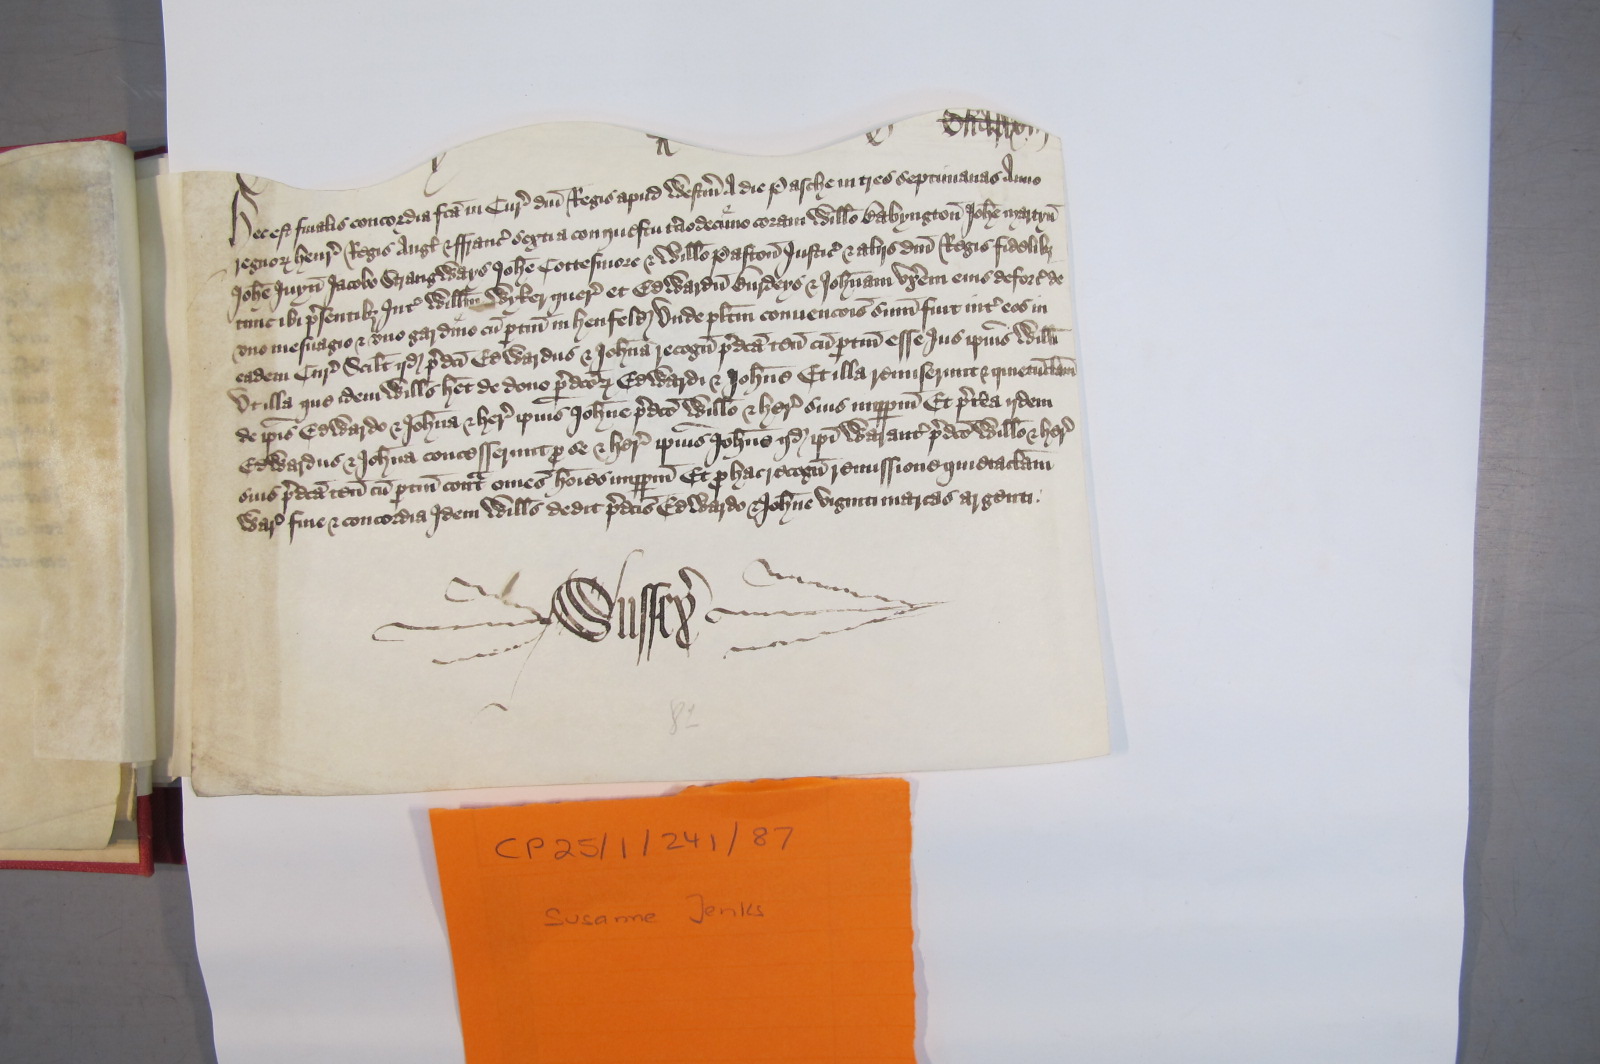 Hec est finalis concordia fca in Cur' dni Regis apud Westm' A die Pasche in tres septimanas Anno
regnor' Henr' Regis Angl' & ffranc' sexti a conquestu t'ciodecimo coram Willo Babyngton' Johe Martyn'
Johe Juyn' Jacobo Strangways Johe Cottesmore & Willo Paston' Justic' & aliis dni Regis fidelib'
tunc ibi p'sentib' Int' Willm Wyker quer' et Edwardu' Burdeys & Johnam vx'em eius deforc' de
vno mesuagio & vno gardino cu' p'tin' in henfeld' Vnde pl'itm convencois sum' fuit int' eos in
eadem Cur' Scilt qd' p'dci Edwardus & Johna recogn' p'dca ten' cu' p'tin' esse Jus ipius Willi
Vt illa que idem Wills het de dono p'dcor' Edwardi & Johne Et illa remiserunt & quietuclam'
de ipis Edwardo & Johna & her' ipius Johne p'dco Willo & her' suis imp'pm Et p't'ea iidem
Edwardus & Johna concesserunt pro se & her' ipius Johne qd' ipi Warant' p'dco Willo & her'
suis p'dca ten' cu' p'tin' cont' omes hoies imp'pm Et pro hac recogn' remissione quietaclam'
War' fine & concordia Idem Wills dedit p'dcis Edwardo & Johne viginti marcas argenti.
Sussex'
82
CP25/1/241/87
Susanne Jenks